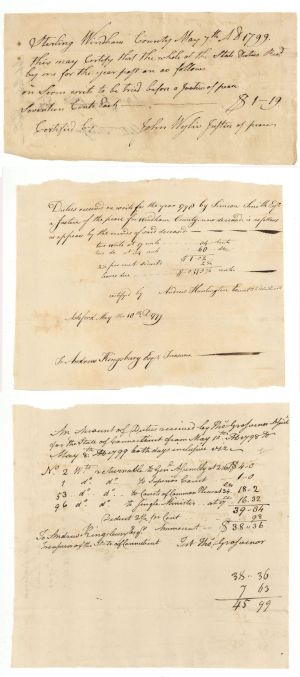 Sterling Windham County May 7th AD 1799
this may Certify that the whole of the State Duties Recd
by me for the year past are as follows
on Seven writs to be tried before a Justice of peace
Seventeen Cents Each $1-19
Certified by John Wylie Justice of peace
Duties received on writs for the year 1798 by Simeon Smith Esqr
a Justice of the peace for Windham County now deceased is as follows
as appears by the records of said deceased
two writs at 17
$1-
certified by Andrew Huntington
Ashford May the 10th AD 1799
To Andrew Kingsbury Esqr Treasurer
An Amount of Duties received by Tho Grosvenor
for the State of Connecticut from May 1st AD 1798 to
May 8th AD 1799 both days inclusive
No 2 Wts returnable to Genl Assembly at 2 $4-0
1 do do to Superior Court 1-0
53 do do to Courts of Common Pleas at 34 18-2
96 do do to Single Minister at 17 16-32
39-34
Deduct 2½ pr Cent 98
To Andrew Kingsbury Esqr Amount $38-36
Treasurer of the State of Connecticut Test Tho Grosvenor
38-36
7 63
45 99